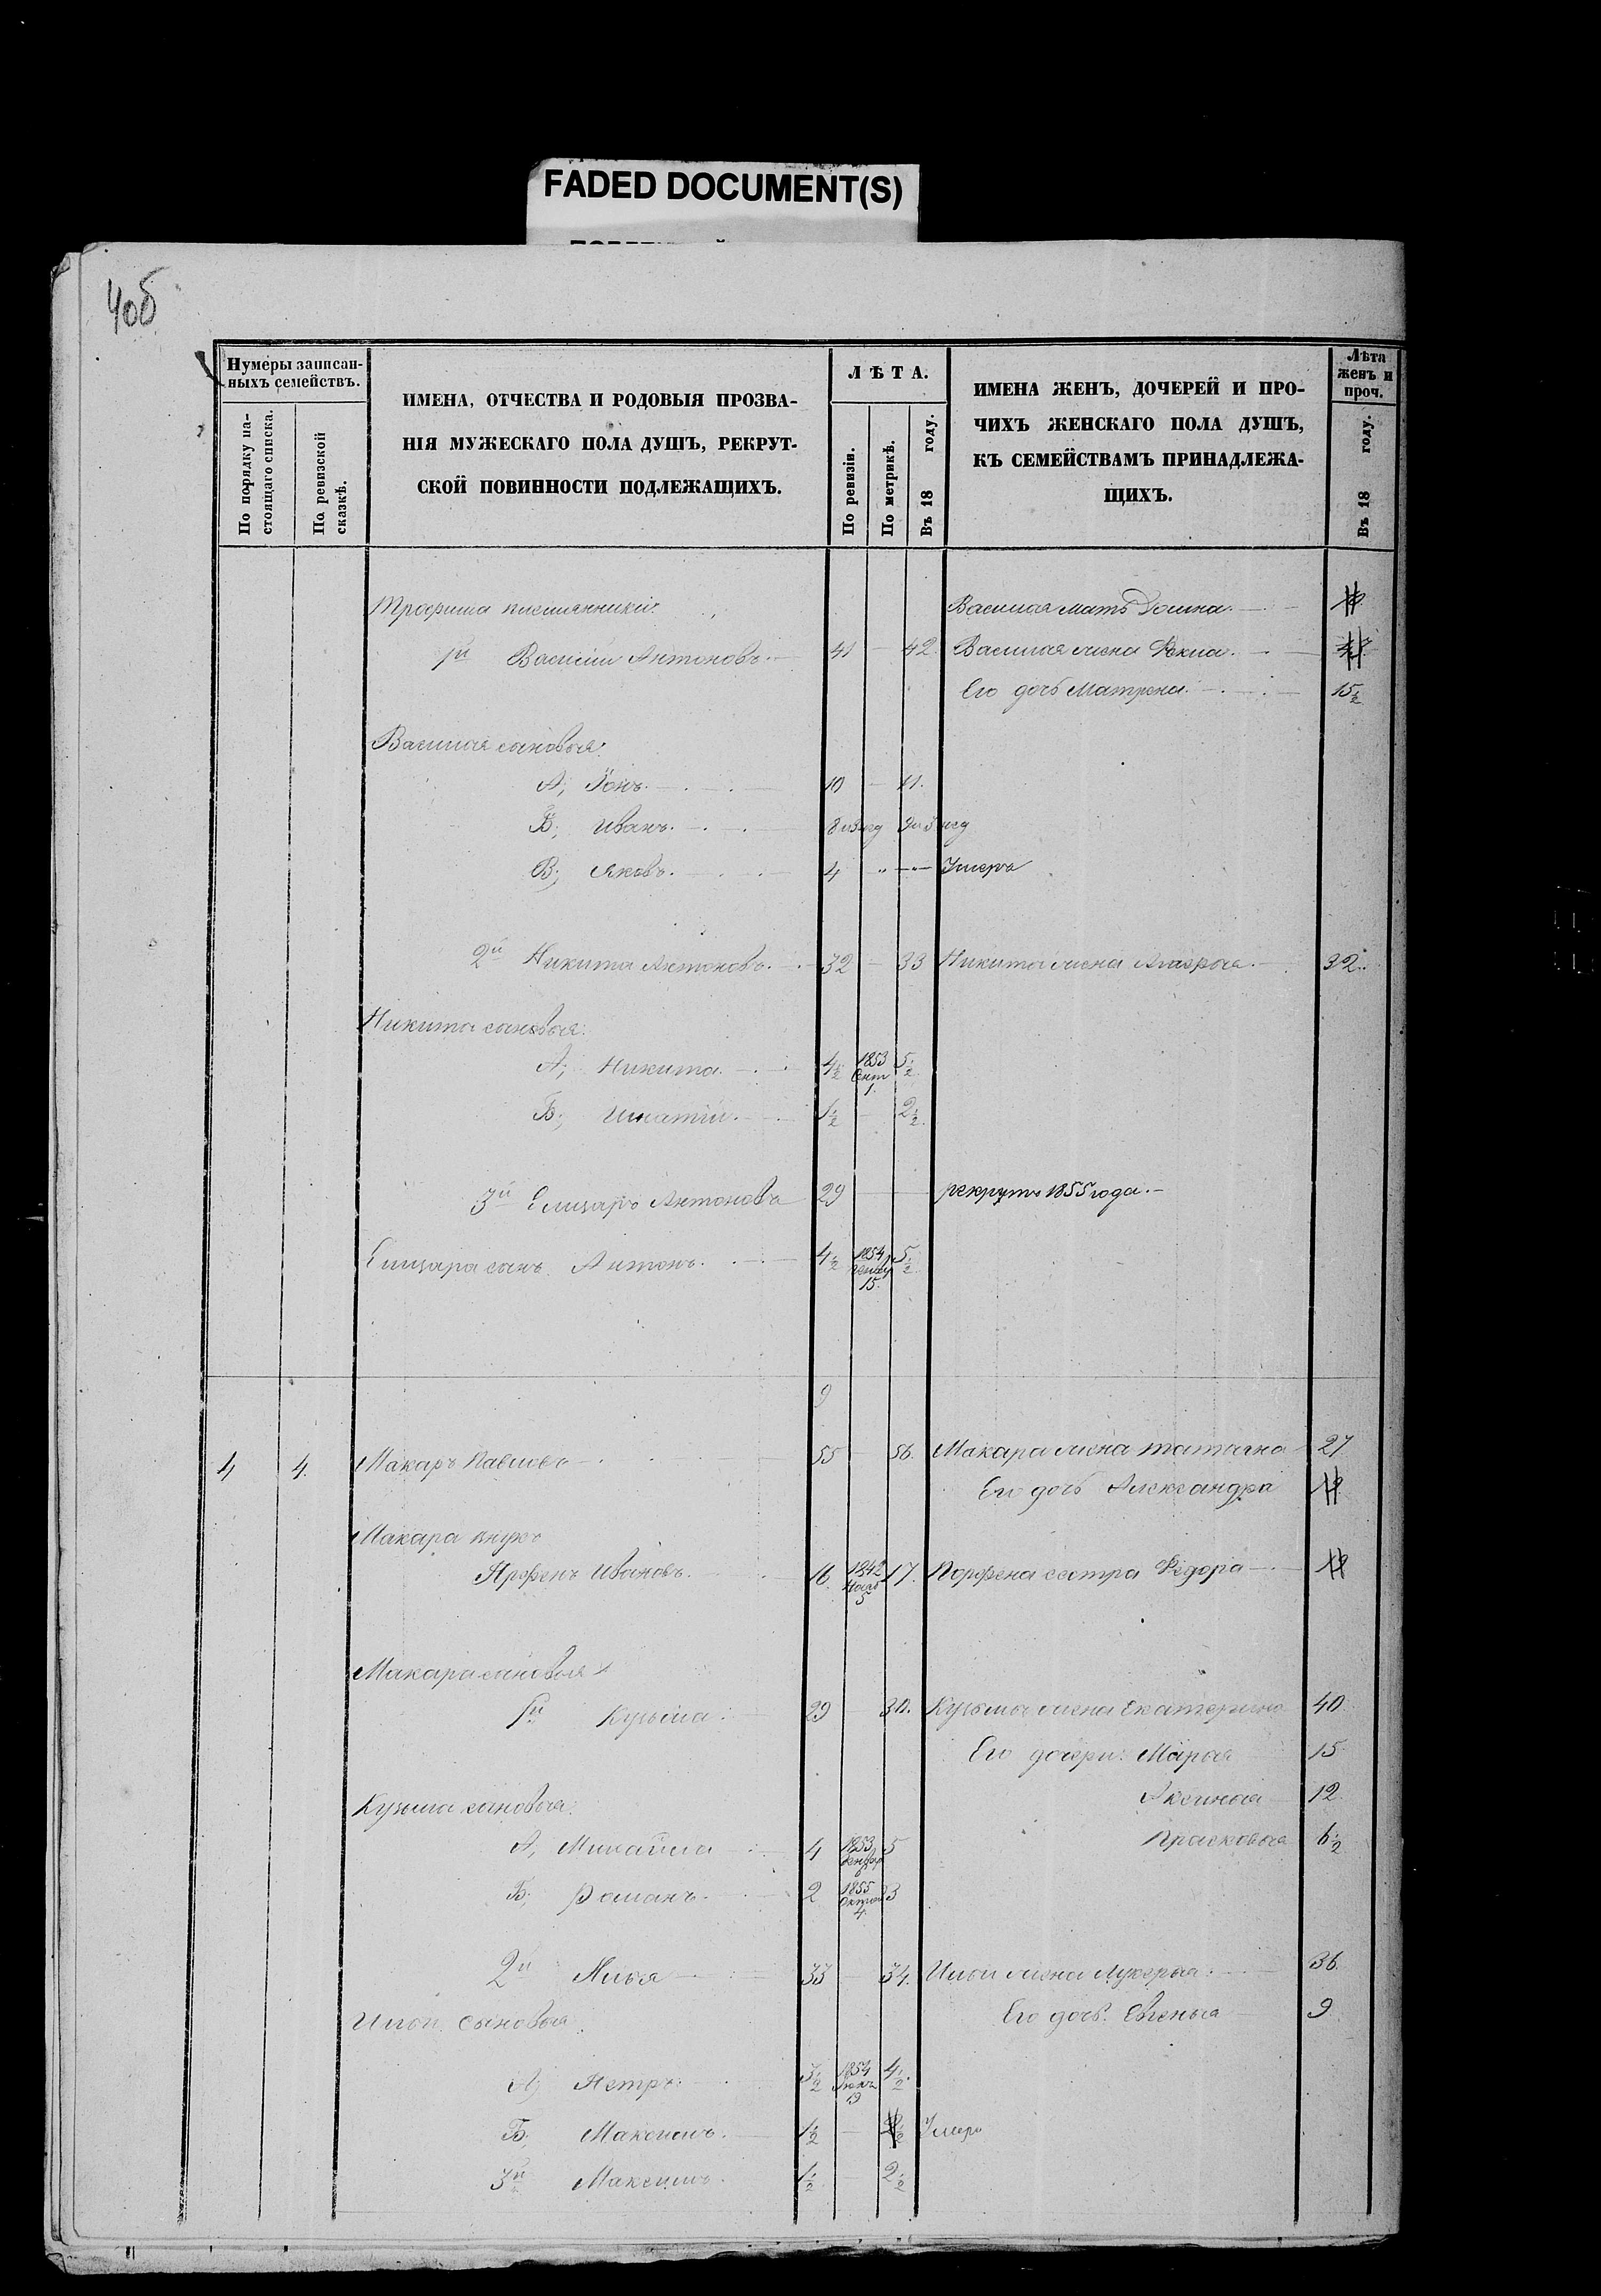 FADED DOCUMENT(S)
4об
Нумеры записан-
ныхъ семействъ.
По порядку на-
стоящаго списка.
По ревизской
сказкѣ.
ИМЕНА, ОТЧЕСТВА И РОДОВЫЯ ПРОЗВА-
НІЯ МУЖЕСКАГО ПОЛА ДУШЪ, РЕКРУТ-
СКОЙ ПОВИННОСТИ ПОДЛЕЖАЩИХЪ.
ЛѢТА.
По ревизіи.
По метрикѣ.
Въ 18 году.
ИМЕНА ЖЕНЪ, ДОЧЕРЕЙ И ПРО-
ЧИХЪ ЖЕНСКАГО ПОЛА ДУШЪ,
КЪ СЕМЕЙСТВАМЪ ПРИНАДЛЕЖА-
ЩИХЪ.
Лѣта
женъ и
проч.
Въ 18 году.
Трофима племянники Василья мать Домна
1й Василій Антоновъ 41 — 42 Василья жена Фекла
Его дочь Матрена 15½
Василья сыновья:
А, Іонъ 10 — 11.
Б, Иванъ 8 9
В; Яковъ 4 " — " — Умеръ
2й Никита Антоновъ 32 — 33 Никита жена Агафья 32
Никита сыновья:
А; Никита 4½ 1853 Сент 1. 5½
Б; Игнатій 1½ — 2½
3й Елизаръ Антоновъ 29 рекрутъ 1855 года.
Елизара сынъ Антонъ 4½ 1854 15. 5½
9
4 4. Макаръ Павловъ 55 — 56. Макара жена Татьяна 27
Его дочь Александра
Макара внукъ
Парфенъ Ивановъ 16 1842 5 17. Порфена сестра Федора
Макара сыновья
1й Кузьма 29 — 30. Кузьма жена Екатерина 40
Его дочери: Марья 15
Кузьма сыновья: Аксинья 12
А, Михайла 4 1853 5 Прасковья 6½
Б; Романъ 2 1855 Октяб 4. 3
2й Илья 33 — 34. Ильи жена Лукерья 36
Ильи сыновья Его дочь Евгенья 9
А; Петръ 3½ 1854 4½
Б; Максимъ 1½ — 2½ Умеръ
3й Максимъ 1½ 2½